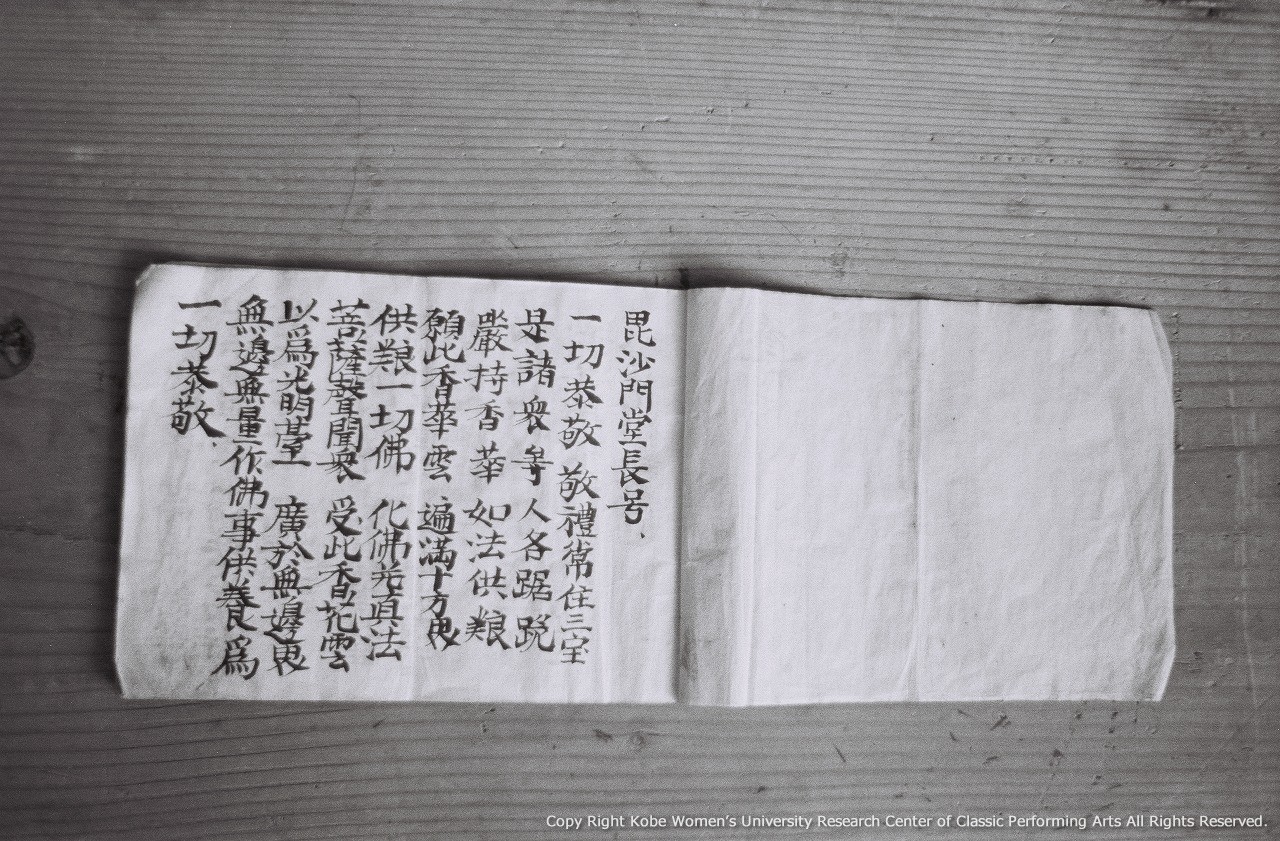 毘沙門堂長号、
一切恭敬 敬禮常住三宝
是諸衆等 人各踞跪
嚴持香華 如法供粮
願此香華雲 遍満十方界
供粮一切佛 化佛并真法
菩薩聲聞衆 受此香花雲
以爲光明臺 廣於無邊界
無邊無量作佛事供養爲
一切恭敬、
Copy Right Kobe Women's University Research Center of Classic Performing Arts All Rights Reserved.